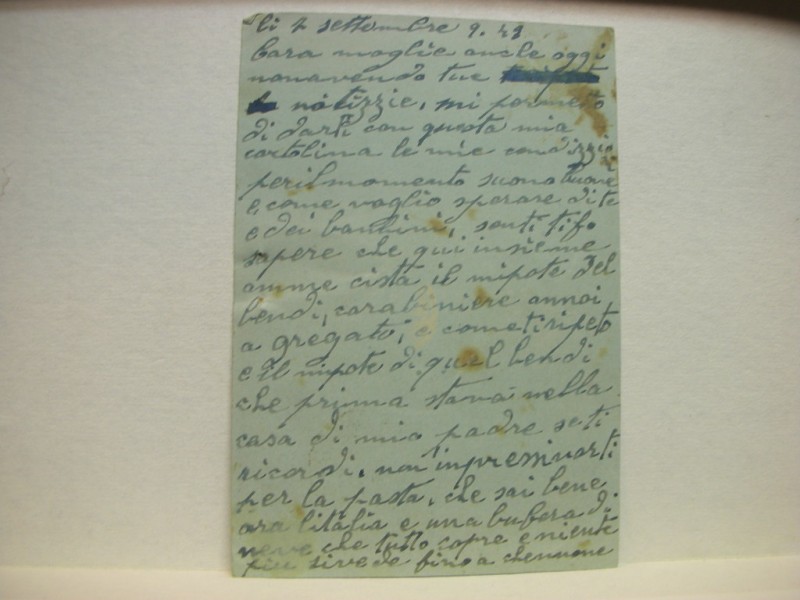 li 4 settembre 9. 43
Cara moglie anche oggi
nonavendo tue
notizzie, mi permetto
di darti con questa mia
cartolina le mie condizzioni
perilmomento suono buone
e, come voglio sperare di te
e dei bambini, senti ti fo
sapere che qui insieme
amme cista il nipote del
bendi, carabiniere annoi
a gregato, e cometiripeto
e il nipote di quel bendi
che prima stava nella
casa di mio padre se ti
ricordi, noi inpresinarti
per la pasta, che sai bene
ora l'italia e una bufera di
neve che tutto copre e niente
piu sivede fino a chennone